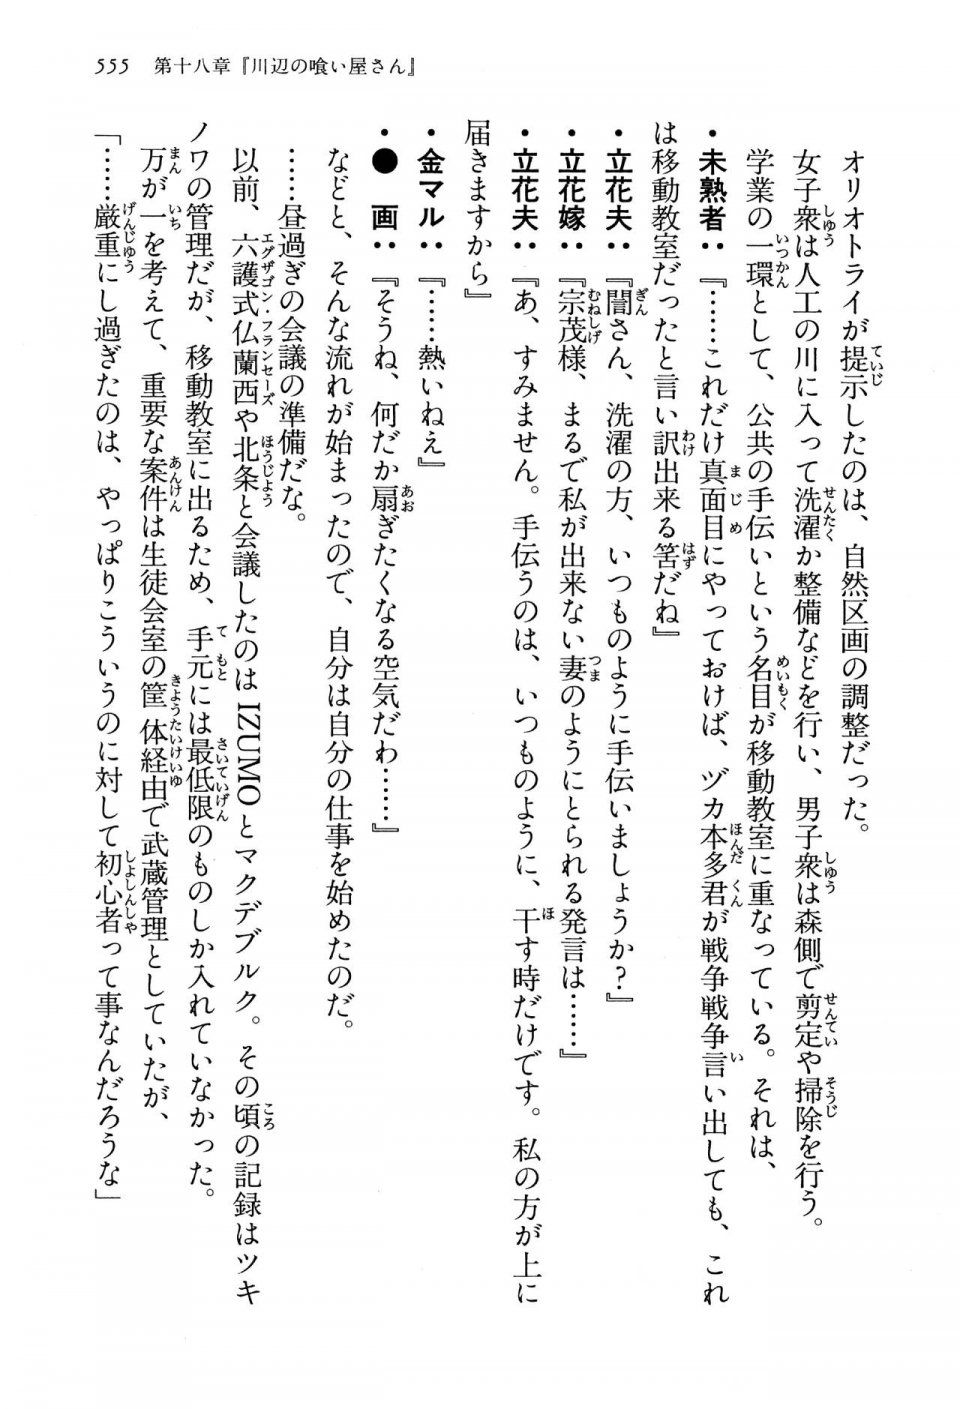 555　第十八章『川辺の喰い屋さん』
オリオトライが提示したのは、自然区画の調整だった。
女子衆は人工の川に入って洗濯か整備などを行い、男子衆は森側で剪定や掃除を行う。
学業の一環として、公共の手伝いという名目が移動教室に重なっている。それは、
・未熟者：『……これだけ真面目にやっておけば、ヅカ本多君が戦争戦争言い出しても、これ
は移動教室だったと言い訳出来る筈だね』
・立花夫：『誾さん、洗濯の方、いつものように手伝いましょうか？』
・立花嫁：『宗茂様、まるで私が出来ない妻のようにとられる発言は……』
・立花夫：『あ、すみません。手伝うのは、いつものように、干す時だけです。私の方が上に
届きますから』
・金マル：『……熱いねえ』
・●　画：『そうね、何だか扇ぎたくなる空気だわ……』
などと、そんな流れが始まったので、自分は自分の仕事を始めたのだ。
……昼過ぎの会議の準備だな。
以前、六護式仏蘭西や北条と会議したのはIZUMOとマクデブルク。その頃の記録はツキ
ノワの管理だが、移動教室に出るため、手元には最低限のものしか入れていなかった。
万が一を考えて、重要な案件は生徒会室の筐体経由で武蔵管理としていたが、
「……厳重にし過ぎたのは、やっぱりこういうのに対して初心者って事なんだろうな」